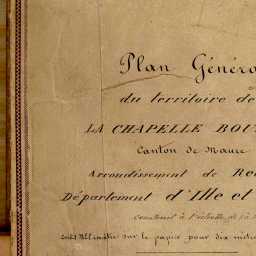 Plan Généra
du territoire de
LA CHAPELLE BOU
Canton de Maure
Arrondissement de Re
Département d'Ille et
construit à l'échelle de 1 à
sur le papier pour dix mètre